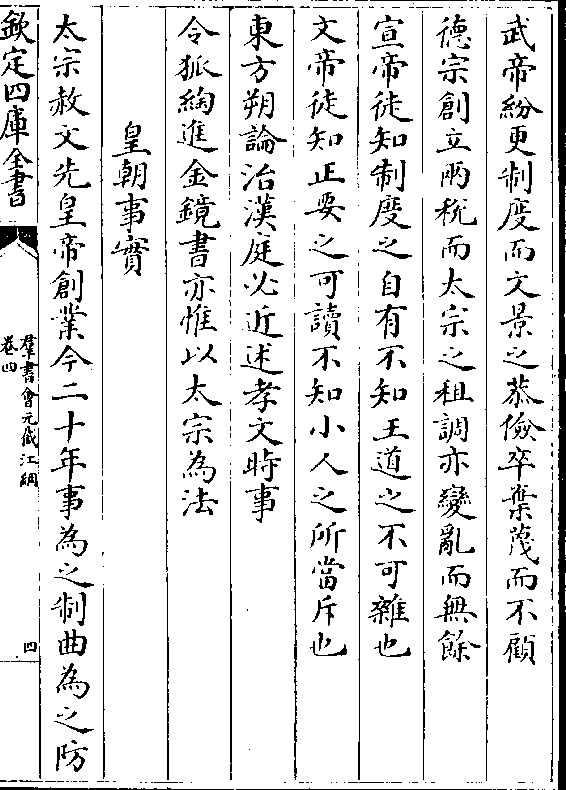 武帝紛更制度而文景之恭儉卒棄蔑而不顧
德宗創立兩稅而太宗之租調亦變亂而無餘
宣帝徒知制度之自有不知王道之不可雜也
文帝徒知正要之可讀不知小人之所當斥也
東方朔論治漢庭必近述孝文時事
令狐綯進金鏡書亦惟以太宗為法
皇朝事實
太宗赦文先皇帝創業今二十年事為之制曲為之防
欽定四庫全書
羣書會元截江網
卷四
四